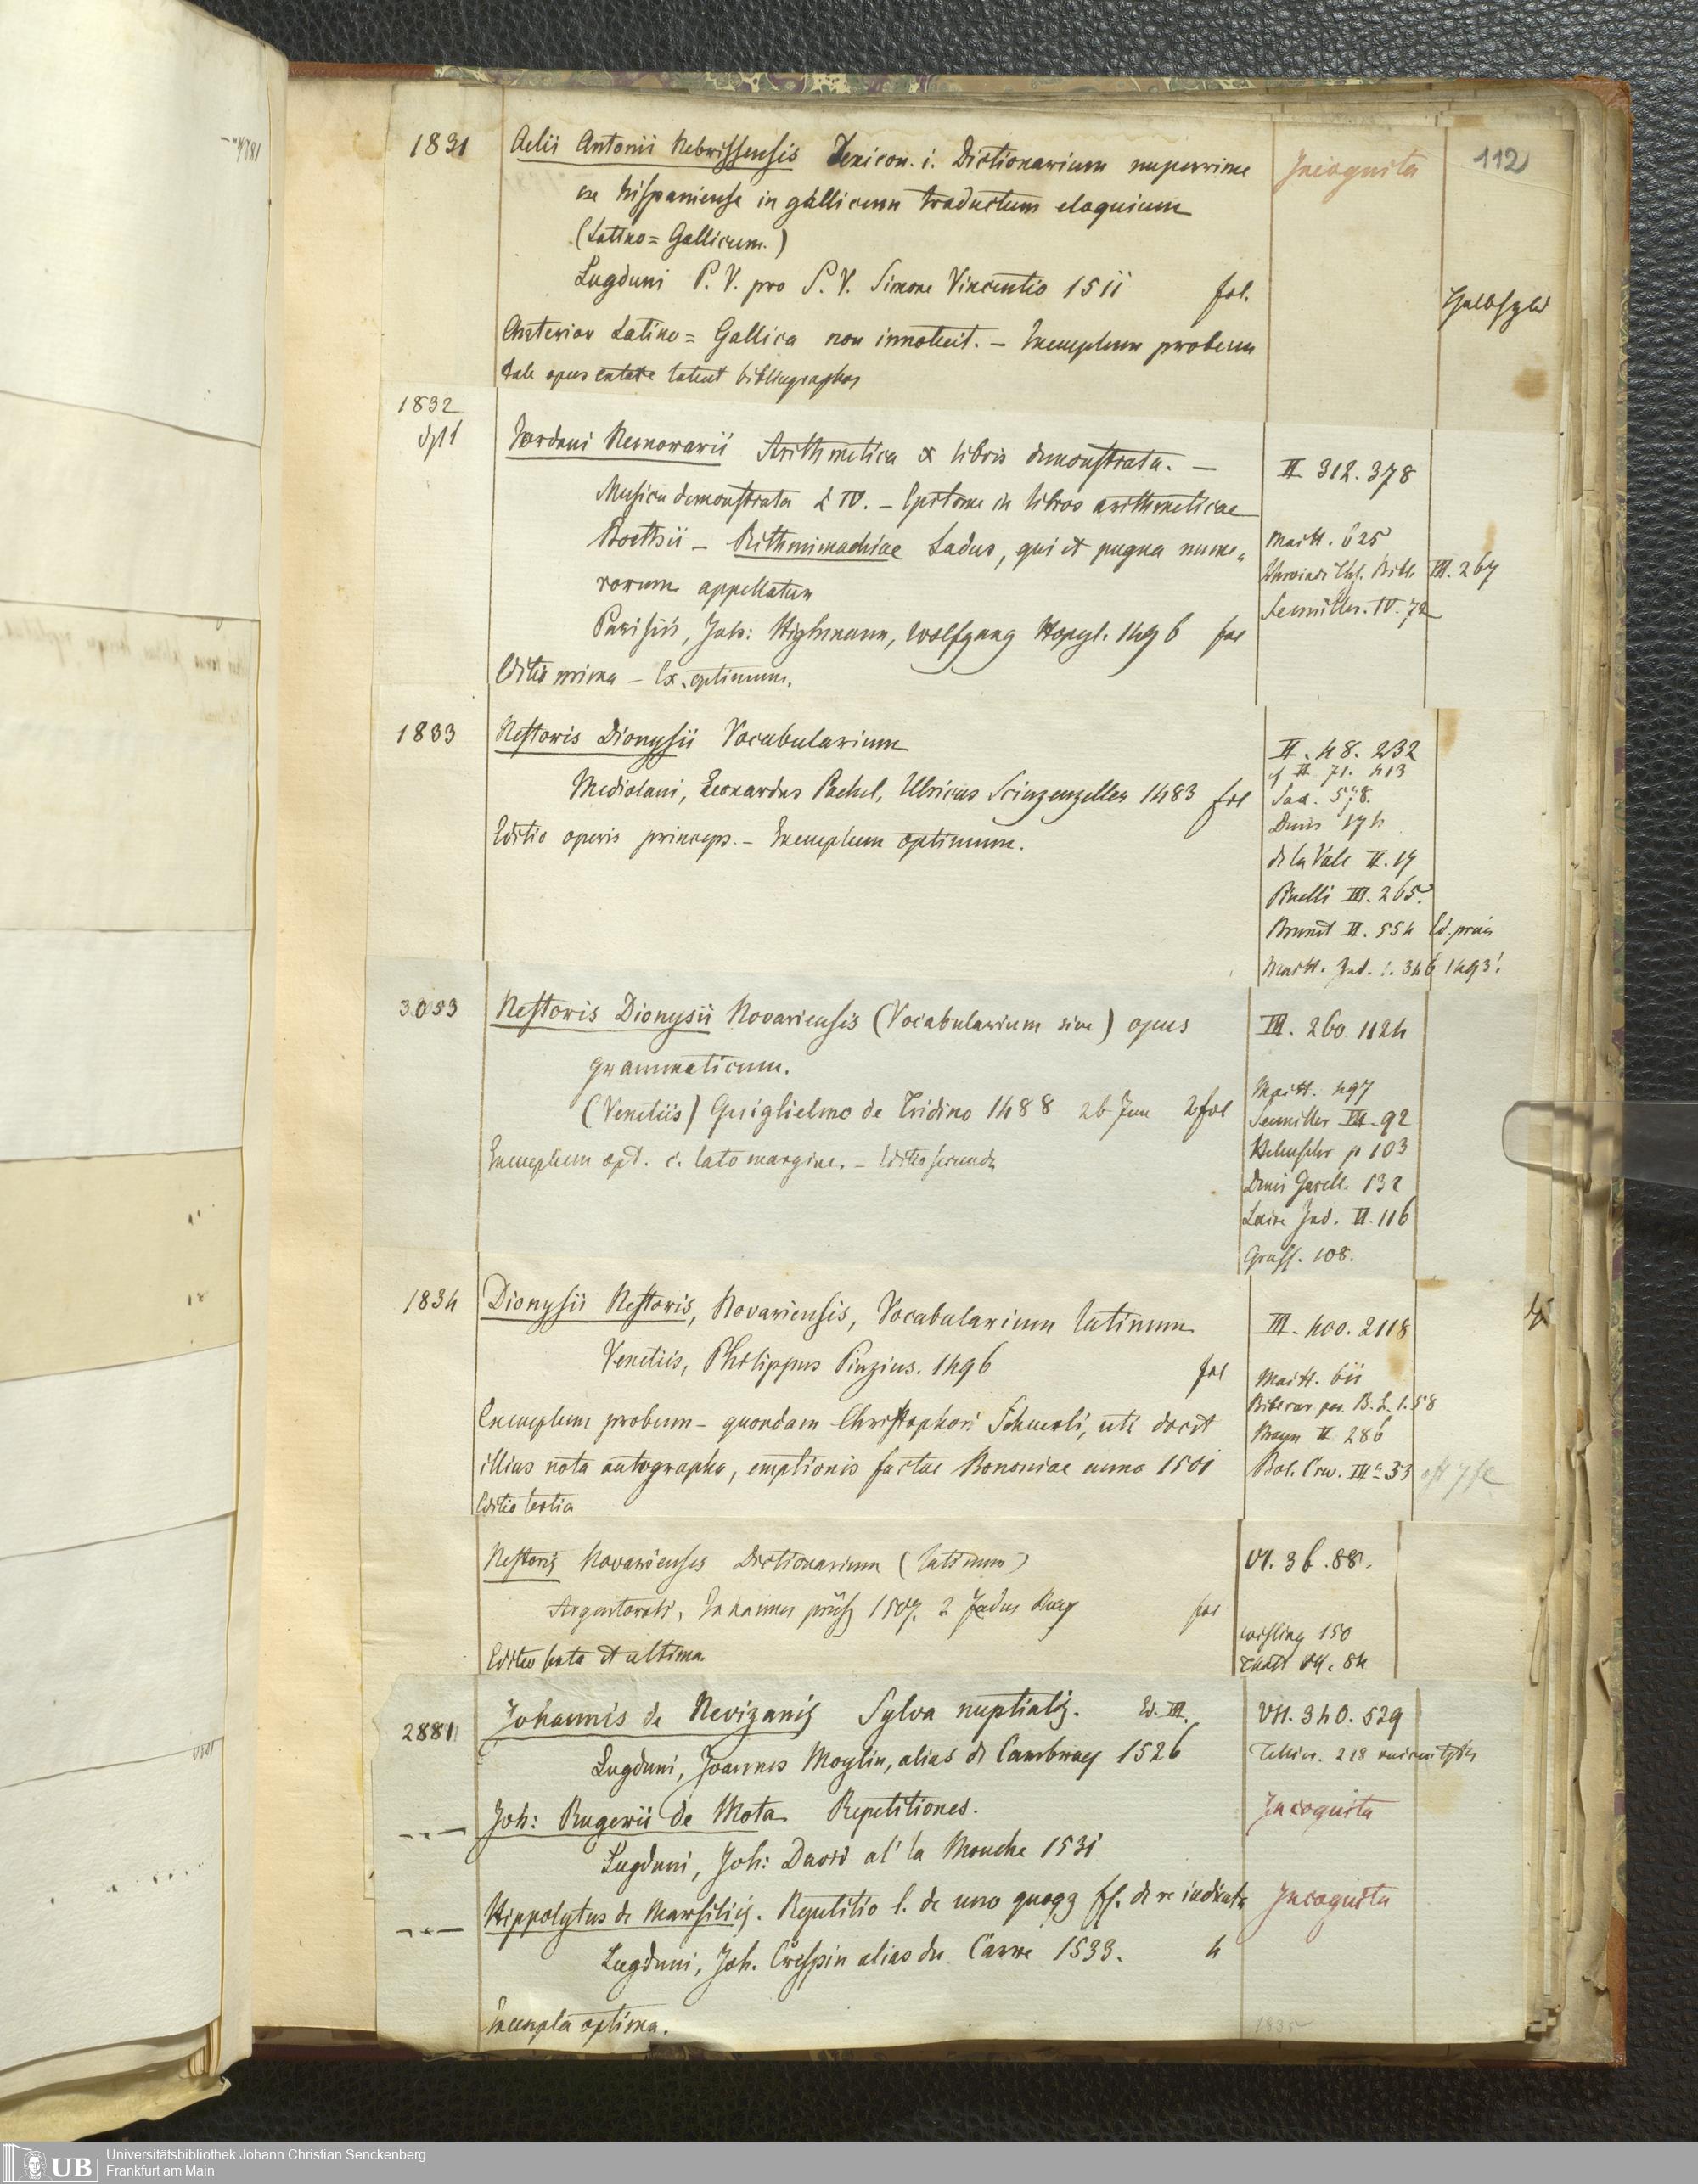 112
1831 Aelii Antonii Nebrissensis Lexicon. i. Dictionarium nuperrime Incognita
ex hispaniense in gallicum traductum eloquium
(Latino=Gallicum.)
Lugduni P. V. pro S. V. Simone Vincentio 1511 fol.
Anterior Latino=Gallica non innotuit. – Exemplum probum
tale opus latent bibliographos
1832
Jordani Nemorarii Arithmetica x libris demonstrata. – II 312. 378
Musica demonstrata L IV. – Epitome in libros arithmeticae
Boethii – Rithmimachiae Ludus, qui et pugna nume= Maitt. 625
rorum appellatur III. 267
Parisiis, Joh: Highmann, Wolfgang Hopyl. 1496 fol Seemiller. IV. 72
Editio prima – Ex. optimum.
1833 Nestoris Dionysii Vocabularium II. 48. 232
cf II 71. 413
Mediolani, Leonardus Pachel, Ulricus Scinzenzeller 1483 fol Sax. 578.
Denis 174
Editio operis princeps. – Exemplum optimum.
de la Vale II. 19
Pinelli III. 265.
Brunet II. 554 Ed. princ
Maitt. Ind. 1. 346 1493!
3053 Nestoris Dionysii Novariensis (Vocabularium sive) opus III. 260. 1124
grammaticum.
Maitt. 497
(Venetiis) Guiglielmo de Tridino 1488 26 Jun 2 fol Seemiller III. 92
p 103
Exemplum opt. c. lato margine. – Editio secunda
Denis Garell. 132
Laire Ind. II. 116
Grass. 108.
1834 Dionysii Nestoris, Novariensis, Vocabularium latinum III. 400. 2118
Venetiis, Philippus Pinzius. 1496 fol Maitt. 611
B. L. 1. 58
Exemplum probum – quondam Christophori Scheurli, uti docet Braun II 286
illius nota autographa, emptionis factae Bononiae anno 1501 Bol. Crev. III 33
Editio tertia
Nestoris Novariensis Dictionarium (latinum) VI. 36. 88.
Argentorati, Johannes prüß 1507. 2 fol
150
Editio sexta et ultima.
2881 Johannis de Nevizanis Sylva nuptialis. Ed. III. VII. 340. 529
Lugduni, Joannes Moylin, alias de Cambray 1526
Joh: Rugerii de Mota Repetitiones. Incognita
Lugduni, Joh: David al' la Mouche 1531
Hippolytus de Marsiliis. Repetitio l. de uno quoqz ff. de re iudicata Incognita
Lugduni, Joh. Crespin alias du Carre 1533. 4
Exempla optima.
1835
UB Universitätsbibliothek Johann Christian Senckenberg
Frankfurt am Main